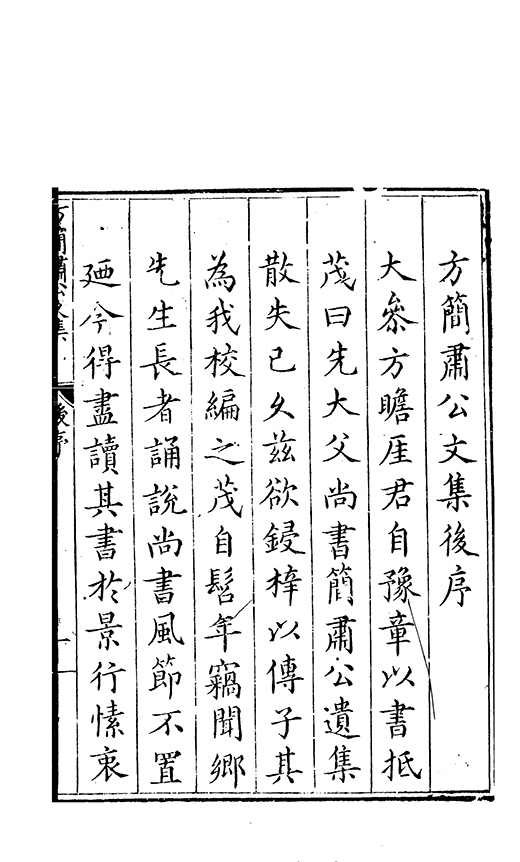 方簡肅公文集後序
大叅方瞻厓君自豫章以書抵
茂曰先大父尚書簡肅公遺集
散失已久兹欲鋟梓以傳子其
為我校編之茂自髫年竊聞鄉
先生長者誦說尚書風節不置
廼今得盡讀其書於景行愫衷
方簡肅公文集
後序
一